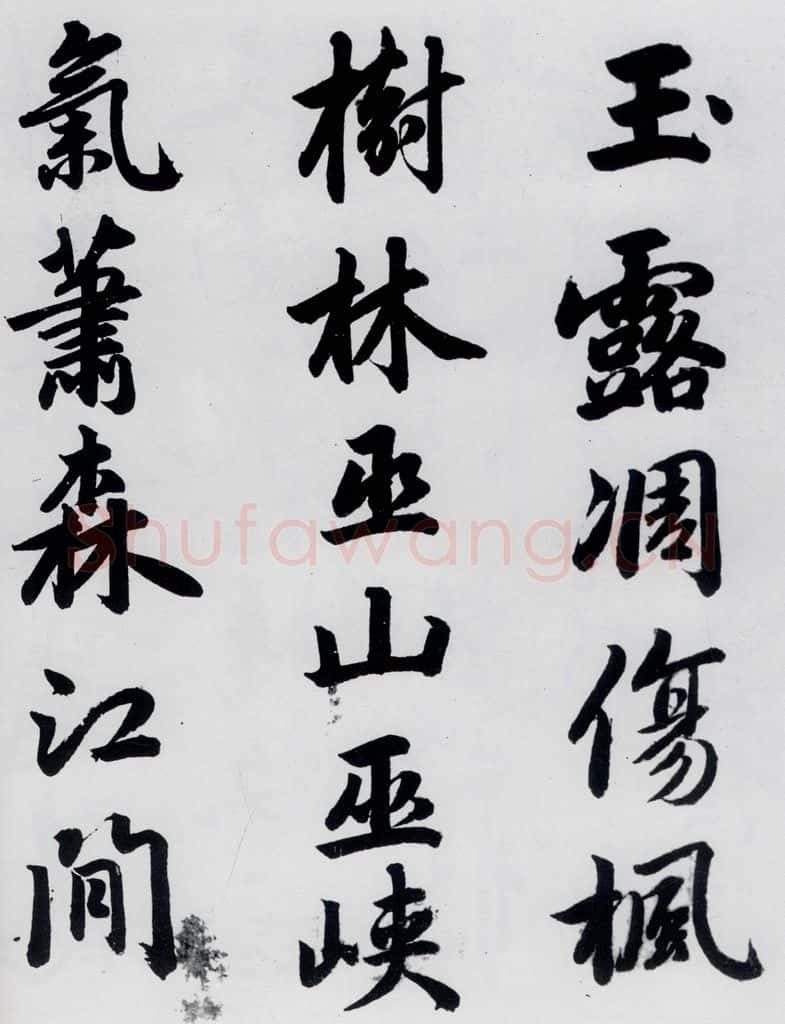 玉露凋傷楓
樹林巫山巫峽
氣蕭森江間
Shufawang.CN